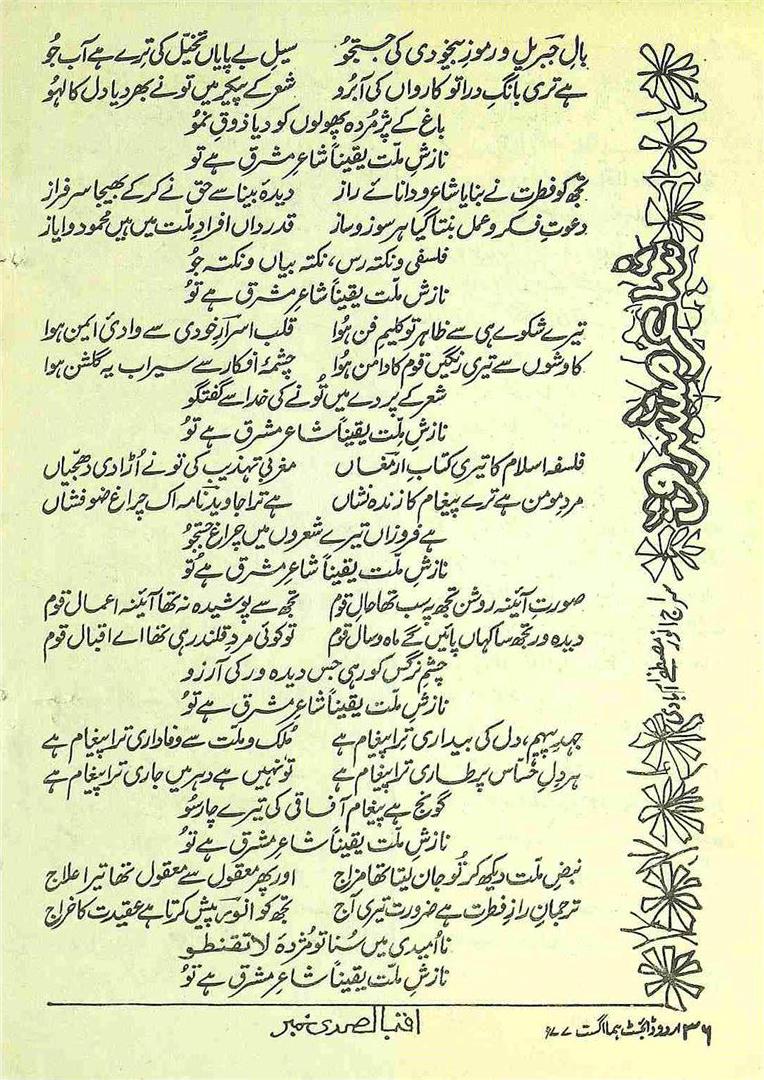 شاعرِ مشرق
سراج انور مصطفےٰ آبادی
بالِ جبریل و رموزِ بیخودی کی جستجو سیلِ بے پایاں تخیّل کی ترے ہے آب جُو
ہے تری بانگِ درا تو کارواں کی آبرو شعر کے پیکر میں تو نے بھر دیا دل کا لہو
باغ کے پژمُردہ پھولوں کو دیا ذوقِ نمُو
نازشِ ملّت یقیناً شاعرِ مشرق ہے تو
تجھ کو فطرت نے بنایا شاعر و دانائے راز دیدۂ بینا سے حق نے کر کے بھیجا سرفراز
دعوتِ فکر و عمل بنتا گیا ہر سوز و ساز قدرداں افرادِ ملّت میں ہیں محمود و ایاز
فلسفی و نکتہ رس، نکتہ بیاں و نکتہ جُو
نازشِ ملّت یقیناً شاعرِ مشرق ہے تُو
تیرے شکوے ہی سے ظاہر تو کلیمِ فن ہُوا قلب اسرارِ خودی سے وادیٔ ایمن ہوا
کاوشوں سے تیری رنگیں قوم کا دامن ہُوا چشمۂ افکار سے سیراب یہ گلشن ہوا
شعر کے پردے میں تُو نے کی خدا سے گفتگو
نازشِ ملّت یقیناً شاعرِ مشرق ہے تُو
فلسفہ اسلام کا تیری کتابِ ارمغاں مغربی تہذیب کی تو نے اُڑا دی دھجّیاں
مردِ مومن ہے ترے پیغام کا زندہ نشاں ہے ترا جاوید نامہ اک چراغِ ضوفشاں
ہے فروزاں تیرے شعروں میں چراغِ جستجو
نازشِ ملّت یقیناً شاعرِ مشرق ہے تُو
صورتِ آئینہ روشن تجھ پہ سب تھا حالِ قوم تجھ سے پوشیدہ نہ تھا آئینۂ اعمالِ قوم
دیدہ ور تجھ سا کہاں پائیں گے ماہ و سالِ قوم تو کوئی مردِ قلندر ہی تھا اے اقبالِ قوم
چشمِ نرگس کو رہی جس دیدہ ور کی آرزو
نازشِ ملّت یقیناً شاعرِ مشرق ہے تُو
جہدِ پیہم، دل کی بیداری ترا پیغام ہے مُلک و ملّت سے وفاداری ترا پیغام ہے
ہر دلِ حسّاس پر طاری ترا پیغام ہے تو نہیں ہے دہر میں جاری ترا پیغام ہے
گونج ہے پیغام آفاقی کی تیرے چار سُو
نازشِ ملّت یقیناً شاعرِ مشرق ہے تُو
نبضِ ملّت دیکھ کر تُو جان لیتا تھا مزاج اور پھر معقول سے معقول تھا تیرا علاج
ترجمانِ رازِ فطرت ہے ضرورت تیری آج تجھ کو انورؔ پیش کرتا ہے عقیدت کا خراج
نا اُمیدی میں سُنا تو مُژدۂ لا تقنطو
نازشِ ملّت یقیناً شاعرِ مشرق ہے تُو
۳۶ اردو ڈائجسٹ ہما اگست ۷۷ء اقبال صدی نمبر